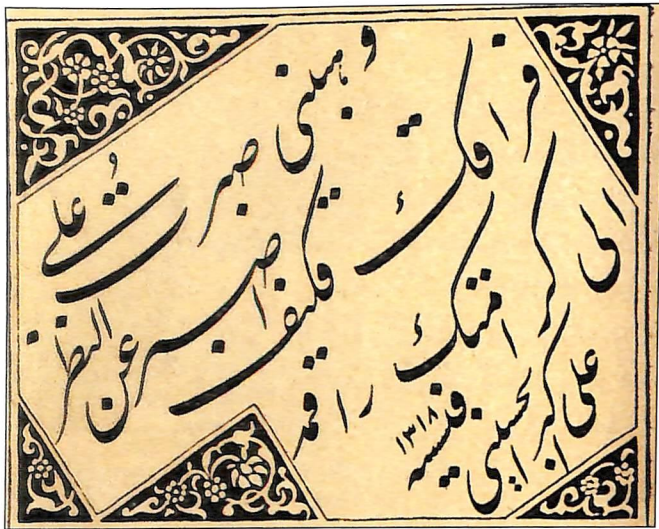 وهبنی صبرت علی
فراقک فکیف اصبر عن النظر
الی کرامتک راقمه
علی اکبر الحسینی فی سنه ۱۳۱۸